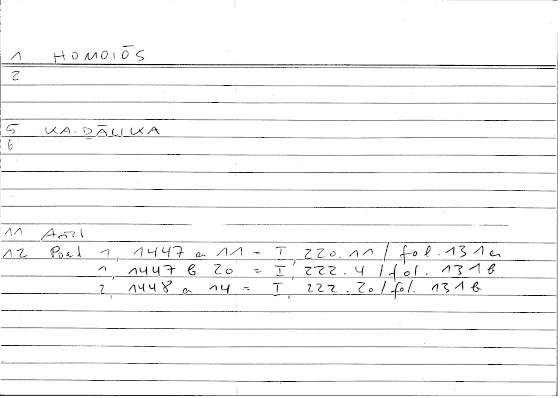 1 HOMOIŌS
2
5 KA-DĀLIKA
6
11 Arist
12 Poet 1, 1447 a 11 = I, 220.11 / fol. 131a
1, 1447 b 20 = I, 222.4 / fol. 131b
2, 1448 a 14 = I, 222.20 / fol. 131b